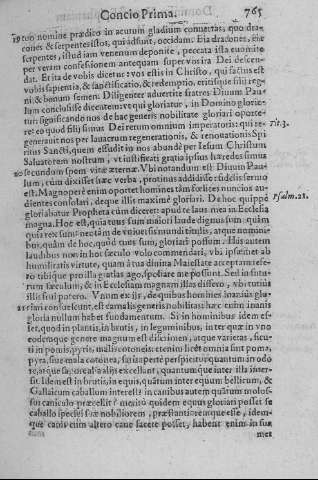 Concio Prima. 765
tuo nomine prædico in acutum gladium conuertas, quo dra-
cones & serpentes illos, qui adsunt, occidam. Eia dracones, eia
serpentes, istud iam venenum deponite, peccata ista euomite
per veram confessionem antequam super vos ira Dei descen-
dat. Et ita de vobis dicetur: vos estis in Christo, qui factus est
vobis sapientia, & sanctificatio, & redemptio, eritisque filij reg-
ni, & bonum semen. Diligenter aduertite fratres Diuum Pau-
lum conclusisse dicentem: vt qui gloriatur, in Domino glorie-
tur: significando nos de hac generis nobilitate gloriari oporte-
re: eo quod filij simus Dei rerum omnium imperatoris: qui re-
generauit nos per lauacrum regenerationis, & renouationis Spi
ritus Sancti, quem effudit in nos abundè per Iesum Christum
Saluatorem nostrum, vt iustificati gratia ipsius hæredes simus
secundum spem vitæ æternæ. Vbi notandum est Diuum Pau-
lum, cùm dixisset hæc verba, protinus addidisse: fidelis sermo
est. Magnopere enim oportet homines tam fœlices nuncios au-
dientes consolari, deque illis maximè gloriari. De hoc quippe
gloriabatur Propheta cùm diceret: apud te laus mea in Ecclesia
magna. Hoc est, quia tuus sum maiori laude dignus sum quàm
quia rex sum: necta de huiuscemodi titulis, atque nomini-
bus, quàm de hoc, quòd tuus sum, gloriari possum. His autem
laudibus non in hoc sæculo volo commendari, vbi ipse inet ab
humilitatis virtute, quam à tua diuina Maiestate acceptam refe-
ro tibique pro illa gratias ago, spoliare me possunt. Sed in futu-
rum sæculum, & in Ecclesiam magnam illas differo, vbi tutius
illis frui potero. Vnum ex ijs, de quibus homines inanius glo-
riari consueuerunt, est carnalis generis nobilitas: hæc enim inanis
gloria nullum habet fundamentum. Si in hominibus idem es-
set, quod in plantis, in brutis, in leguminibus, inter quæ in vno
eodemque genere magnum est discrimen, atque varietas, sicu-
ti in pomis, pyris, malis cotoneis: etenim licèt omnia sint poma,
pyra, siue mala cotonea, satis apertè perspicitur quantum in odo
re, atque sapore alia alijs excellant, quantumque inter illa inter-
sit. Idem est in brutis, in equis, quatum inter equum bellicum, &
Gallaicum caballum interest: in canibus autem quatum molos-
sus caniculo præcellit? meritò quidem equus gloriari posset se
caballo speciei suæ nobiliorem, præstantioremque esse, idem-
que canis cum altero cane facere posset, habent enim in sua
met
Tit. 3.
Psalm. 21.